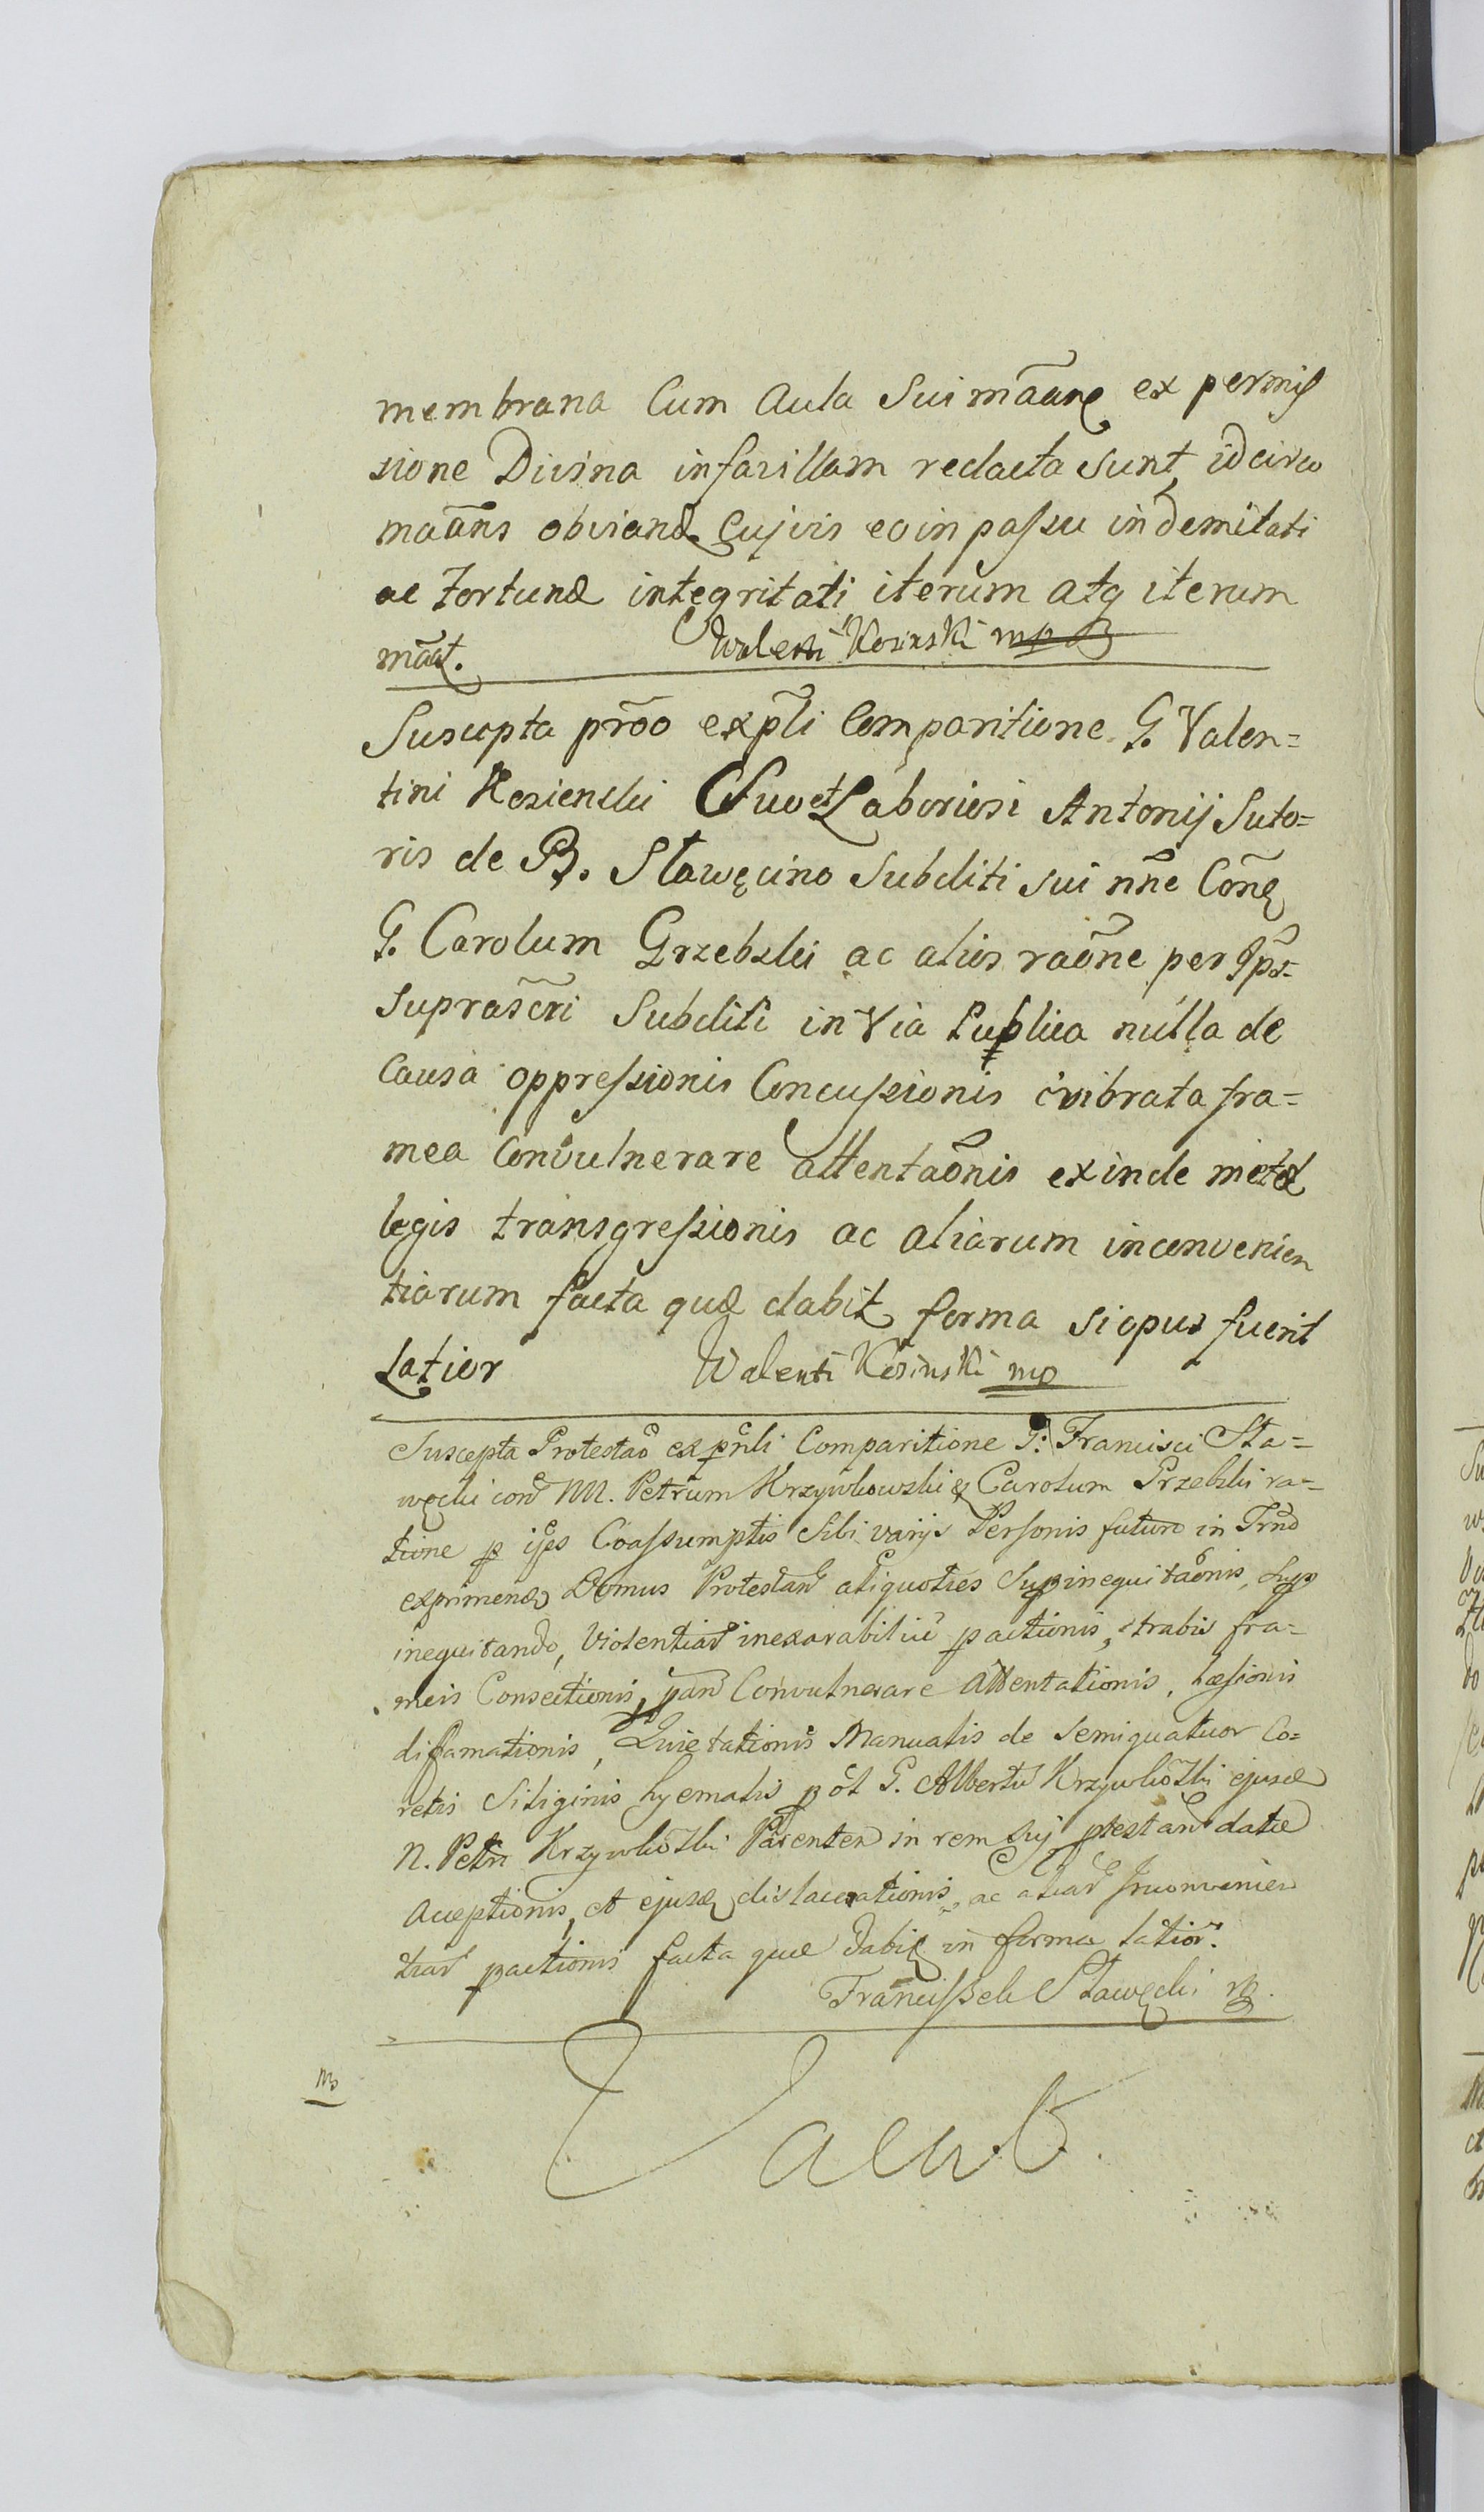 membrana Cum Aula Sui mãanẽ ex permis
sione Divina in favillam redacta sunt, idcirco
maãns obviand Cujvis eo in passu indemitati
ac Fortunæ integritati iterum atq iterum
mãat. Walenti Kosinski mp
Suscepta prõo ex pñli Comparitione G. Valen=
tini Kosienski Suo et Laboriosi Antonij Suto=
ris de B. Sławęcino Subditi sui nñe Conã
G. Carolum Grzebski ac alios raõne per Ips=
suprascri Subditi in Via Publica nulla de
Causa oppressionis Concussionis vibrata fra=
mea Convulnerare attentaõnis exinde metæ
legis transgressionis ac aliarum inconvenien
tiarum facta quæ dabit forma si opus fuerit
Latior Walenti Kosinski mp
Suscepta Protestaõ ex pñli Comparitione G. Francisci Sta=
węcki con̄ NN. Petrum Krzywkowski & Carolum Grzebski ra=
tione p ipẽs Coassumptis Sibi varijs Personis futuro in Trnõ
exprimen̄ Domus Protestan̄ aliquoties Supinequitaõnis, Sup
inequitando, Violentiar̄ inexorabiliũ pactionis, strabis fra=
meis Consectionis, pan̄ Convulnerare Attentationis, Læsionis
difamationis, Quietationis Manualis de Semiquatuor Co=
retis Siliginis hyemalis p ol G. Albertũ Krzywkoski ejusd
N. Petri Krzywkoski Parentem in rem suj ptestan̄ datæ
Acceptionis, et ejusd dislacerationis, ac aliar̄ Inconvenien
tiar̄ pactionis facta quæ dabit in forma latior.
Franciszek Stawęcki mp.